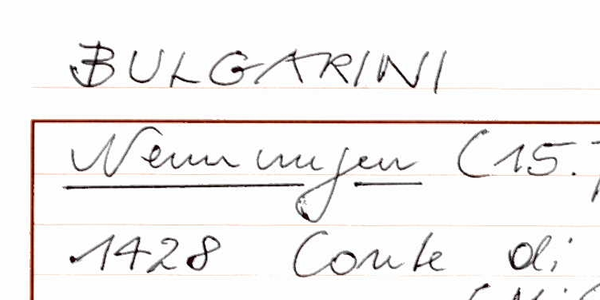 BULGARINI
Nennungen (15.
1428 Conte di